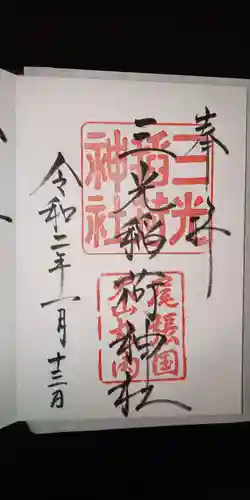 奉拝
三光稲荷神社
三光稲荷神社
尾張国犬山城内
令和二年一月十三日